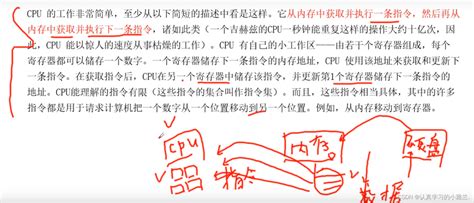 CPU 的工作非常简单,至少从以下简短的描述中看是这样。它从内存中获取并执行一条指令,然后再从
内存中获取并执行下一条指令,诸如此类(一个吉赫兹的CPU一秒钟能重复这样的操作大约十亿次,因
此,CPU 能以惊人的速度从事枯燥的工作)。CPU 有自己的小工作区——由若干个寄存器组成,每个
寄存器都可以储存一个数字。一个寄存器储存下一条指令的内存地址,CPU 使用该地址来获取和更新下
一条指令。在获取指令后,CPU在另一个寄存器中储存该指令,并更新第1个寄存器储存下一条指令的
地址。CPU能理解的指令有限(这些指令的集合叫作指令集)。而且,这些指令相当具体,其中的许多
指令都是用于请求计算机把一个数字从一个位置移动到另一个位置。例如,从内存移动到寄存器。
CPU 内存 硬盘
指令
数据
CSDN @认真学习的小雅兰.